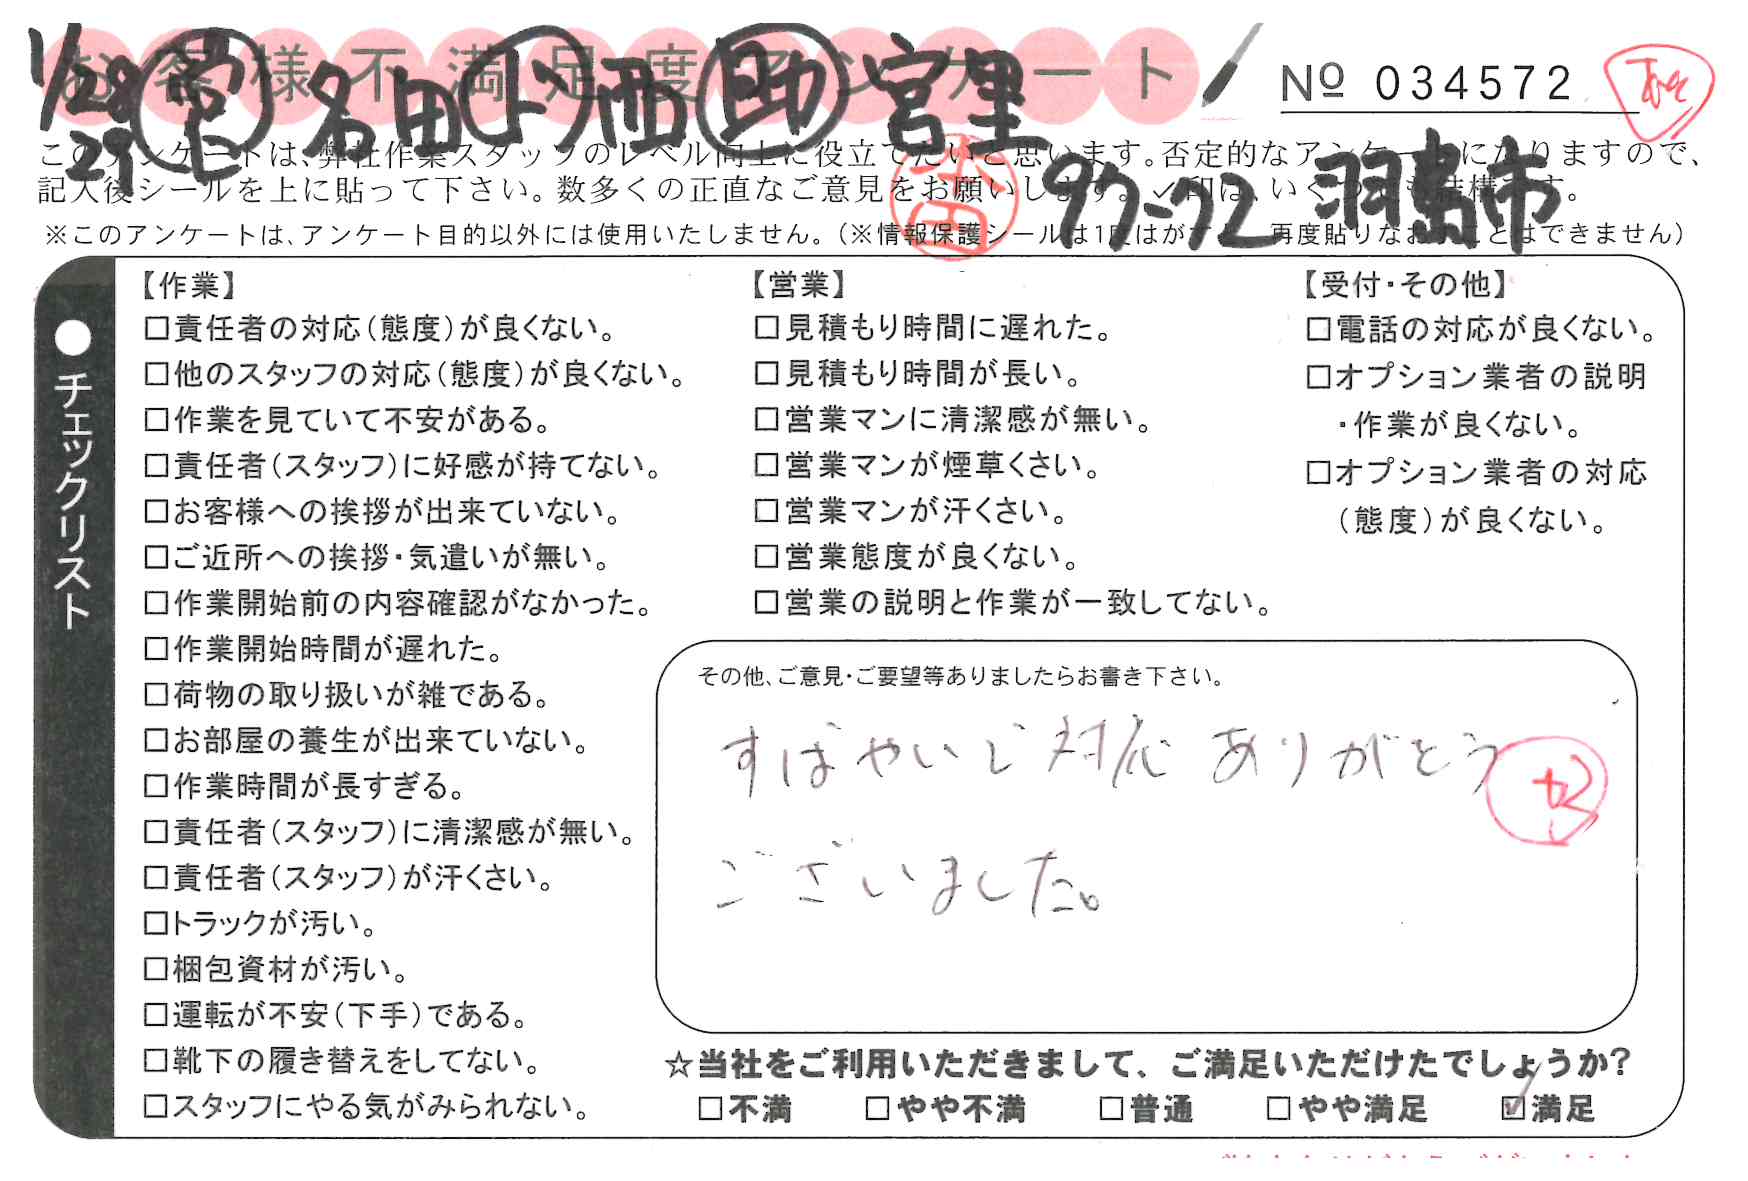 お客様不満足度アンケート
1/28 29 営 名田 ト 西 助 宮里
№ 034572
97-72 羽島市
このアンケートは、弊社作業スタッフのレベル向上に役立てたいと思います。否定的なアンケートになりますので、
記入後シールを上に貼って下さい。数多くの正直なご意見をお願いします。✓印は、いくつでも結構です。
※このアンケートは、アンケート目的以外には使用いたしません。(※情報保護シールは1度はがすと、再度貼りなおすことはできません)
●チェックリスト
【作業】
□責任者の対応(態度)が良くない。
□他のスタッフの対応(態度)が良くない。
□作業を見ていて不安がある。
□責任者(スタッフ)に好感が持てない。
□お客様への挨拶が出来ていない。
□ご近所への挨拶・気遣いが無い。
□作業開始前の内容確認がなかった。
□作業開始時間が遅れた。
□荷物の取り扱いが雑である。
□お部屋の養生が出来ていない。
□作業時間が長すぎる。
□責任者(スタッフ)に清潔感が無い。
□責任者(スタッフ)が汗くさい。
□トラックが汚い。
□梱包資材が汚い。
□運転が不安(下手)である。
□靴下の履き替えをしてない。
□スタッフにやる気がみられない。
【営業】
□見積もり時間に遅れた。
□見積もり時間が長い。
□営業マンに清潔感が無い。
□営業マンが煙草くさい。
□営業マンが汗くさい。
□営業態度が良くない。
□営業の説明と作業が一致してない。
【受付・その他】
□電話の対応が良くない。
□オプション業者の説明
・作業が良くない。
□オプション業者の対応
(態度)が良くない。
その他、ご意見・ご要望等ありましたらお書き下さい。
すばやいご対応 ありがとう
ございました。
☆当社をご利用いただきまして、ご満足いただけたでしょうか?
□不満 □やや不満 □普通 □やや満足 ☑満足